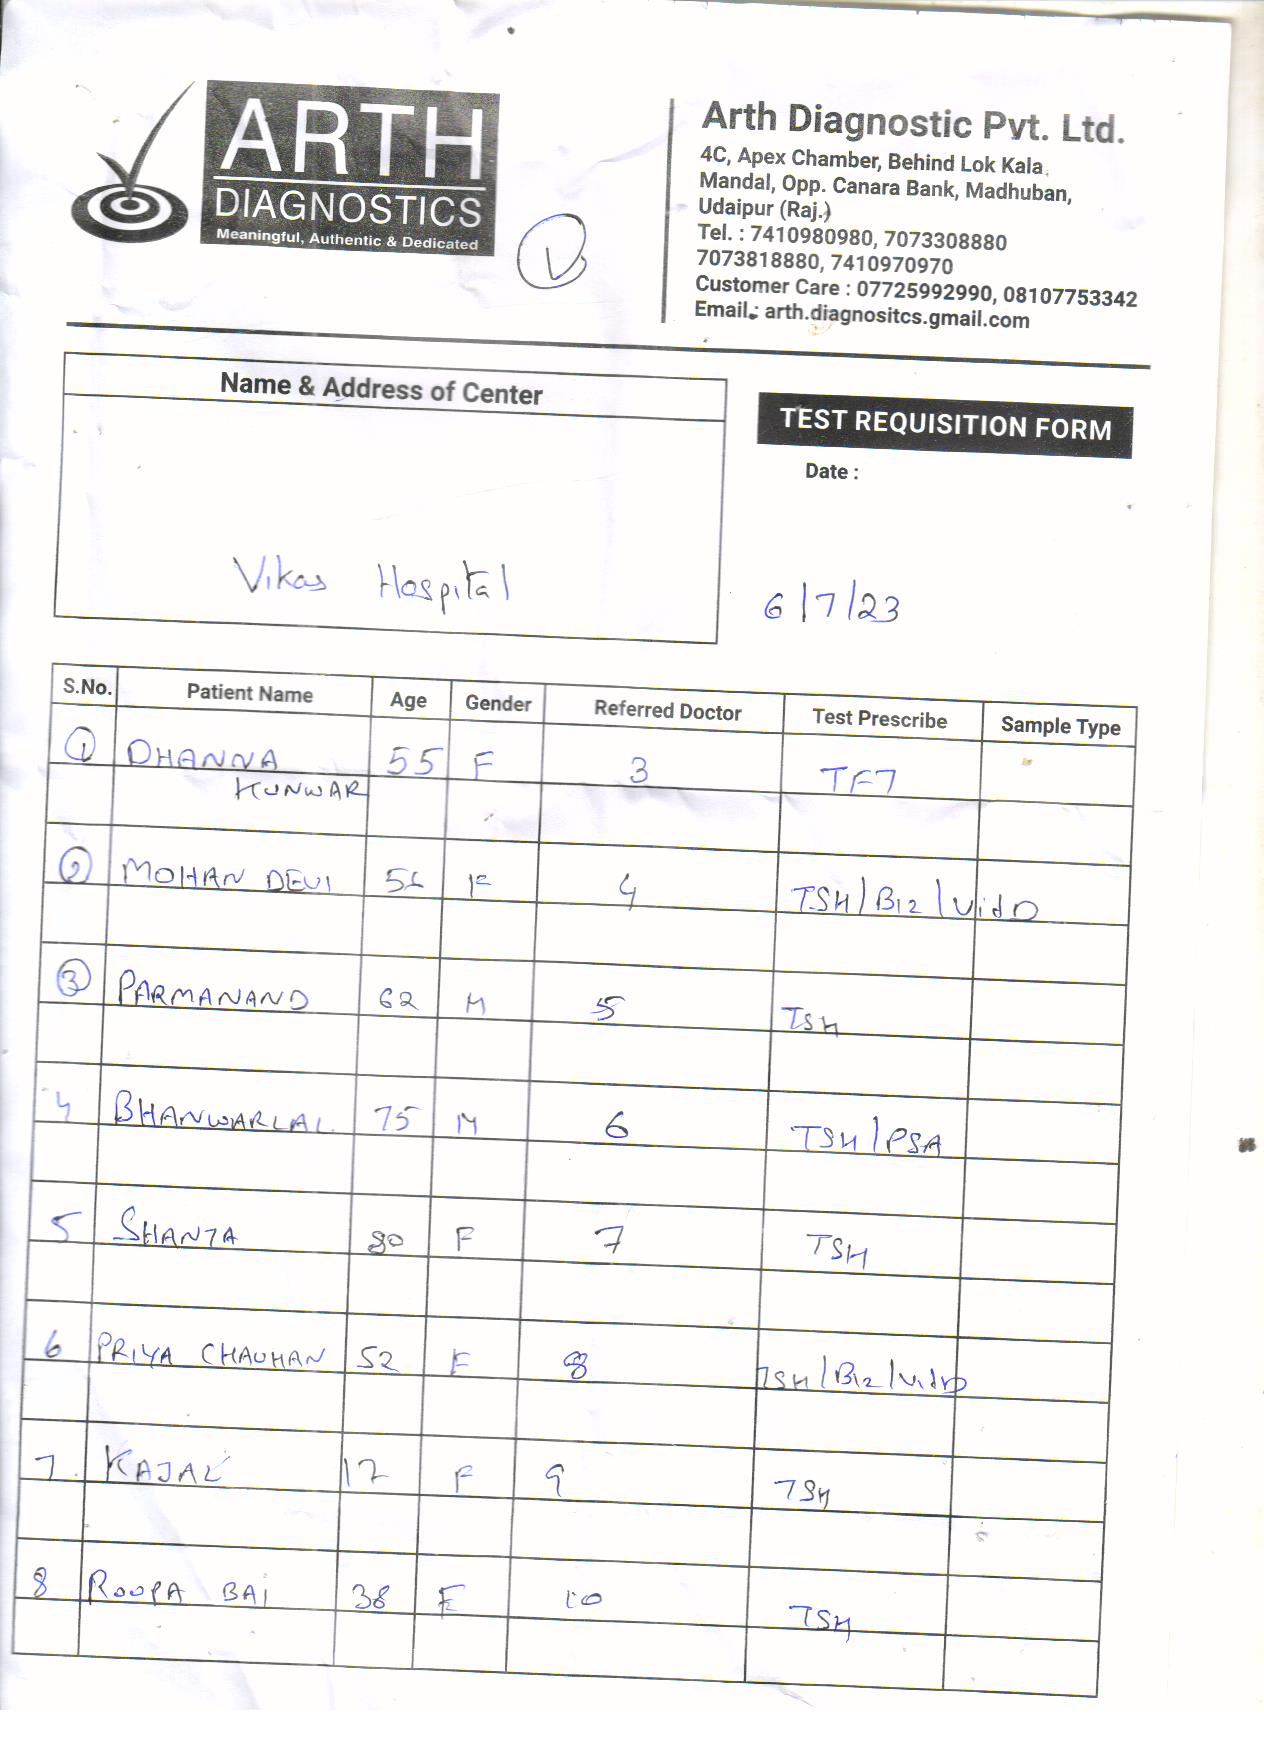 ARTH
DIAGNOSTICS
Meaningful, Authentic & Dedicated
Arth Diagnostic Pvt. Ltd.
4C, Apex Chamber, Behind Lok Kala,
Mandal, Opp. Canara Bank, Madhuban,
Udaipur (Raj.)
Tel. : 7410980980, 7073308880
7073818880, 7410970970
Customer Care : 07725992990, 08107753342
Email.: arth.diagnositcs.gmail.com
Name & Address of Center
Vikas Hospital
TEST REQUISITION FORM
Date :
6/7/23
S.No. Patient Name Age Gender Referred Doctor Test Prescribe Sample Type
1 DHANNA 55 F 3 TFT
KUNWAR
2 MOHAN DEVI F 4 TSH/B12/VitD
3 PARMANAND 62 M 5 TSH
4 BHANWARLAL 75 M 6 TSH/PSA
5 SHANTA 80 F 7 TSH
6 PRIYA CHAUHAN 52 F 8 TSH/B12/VitD
7 KAJAL 17 F 9 TSH
8 ROOPA BAI 38 F 10 TSH